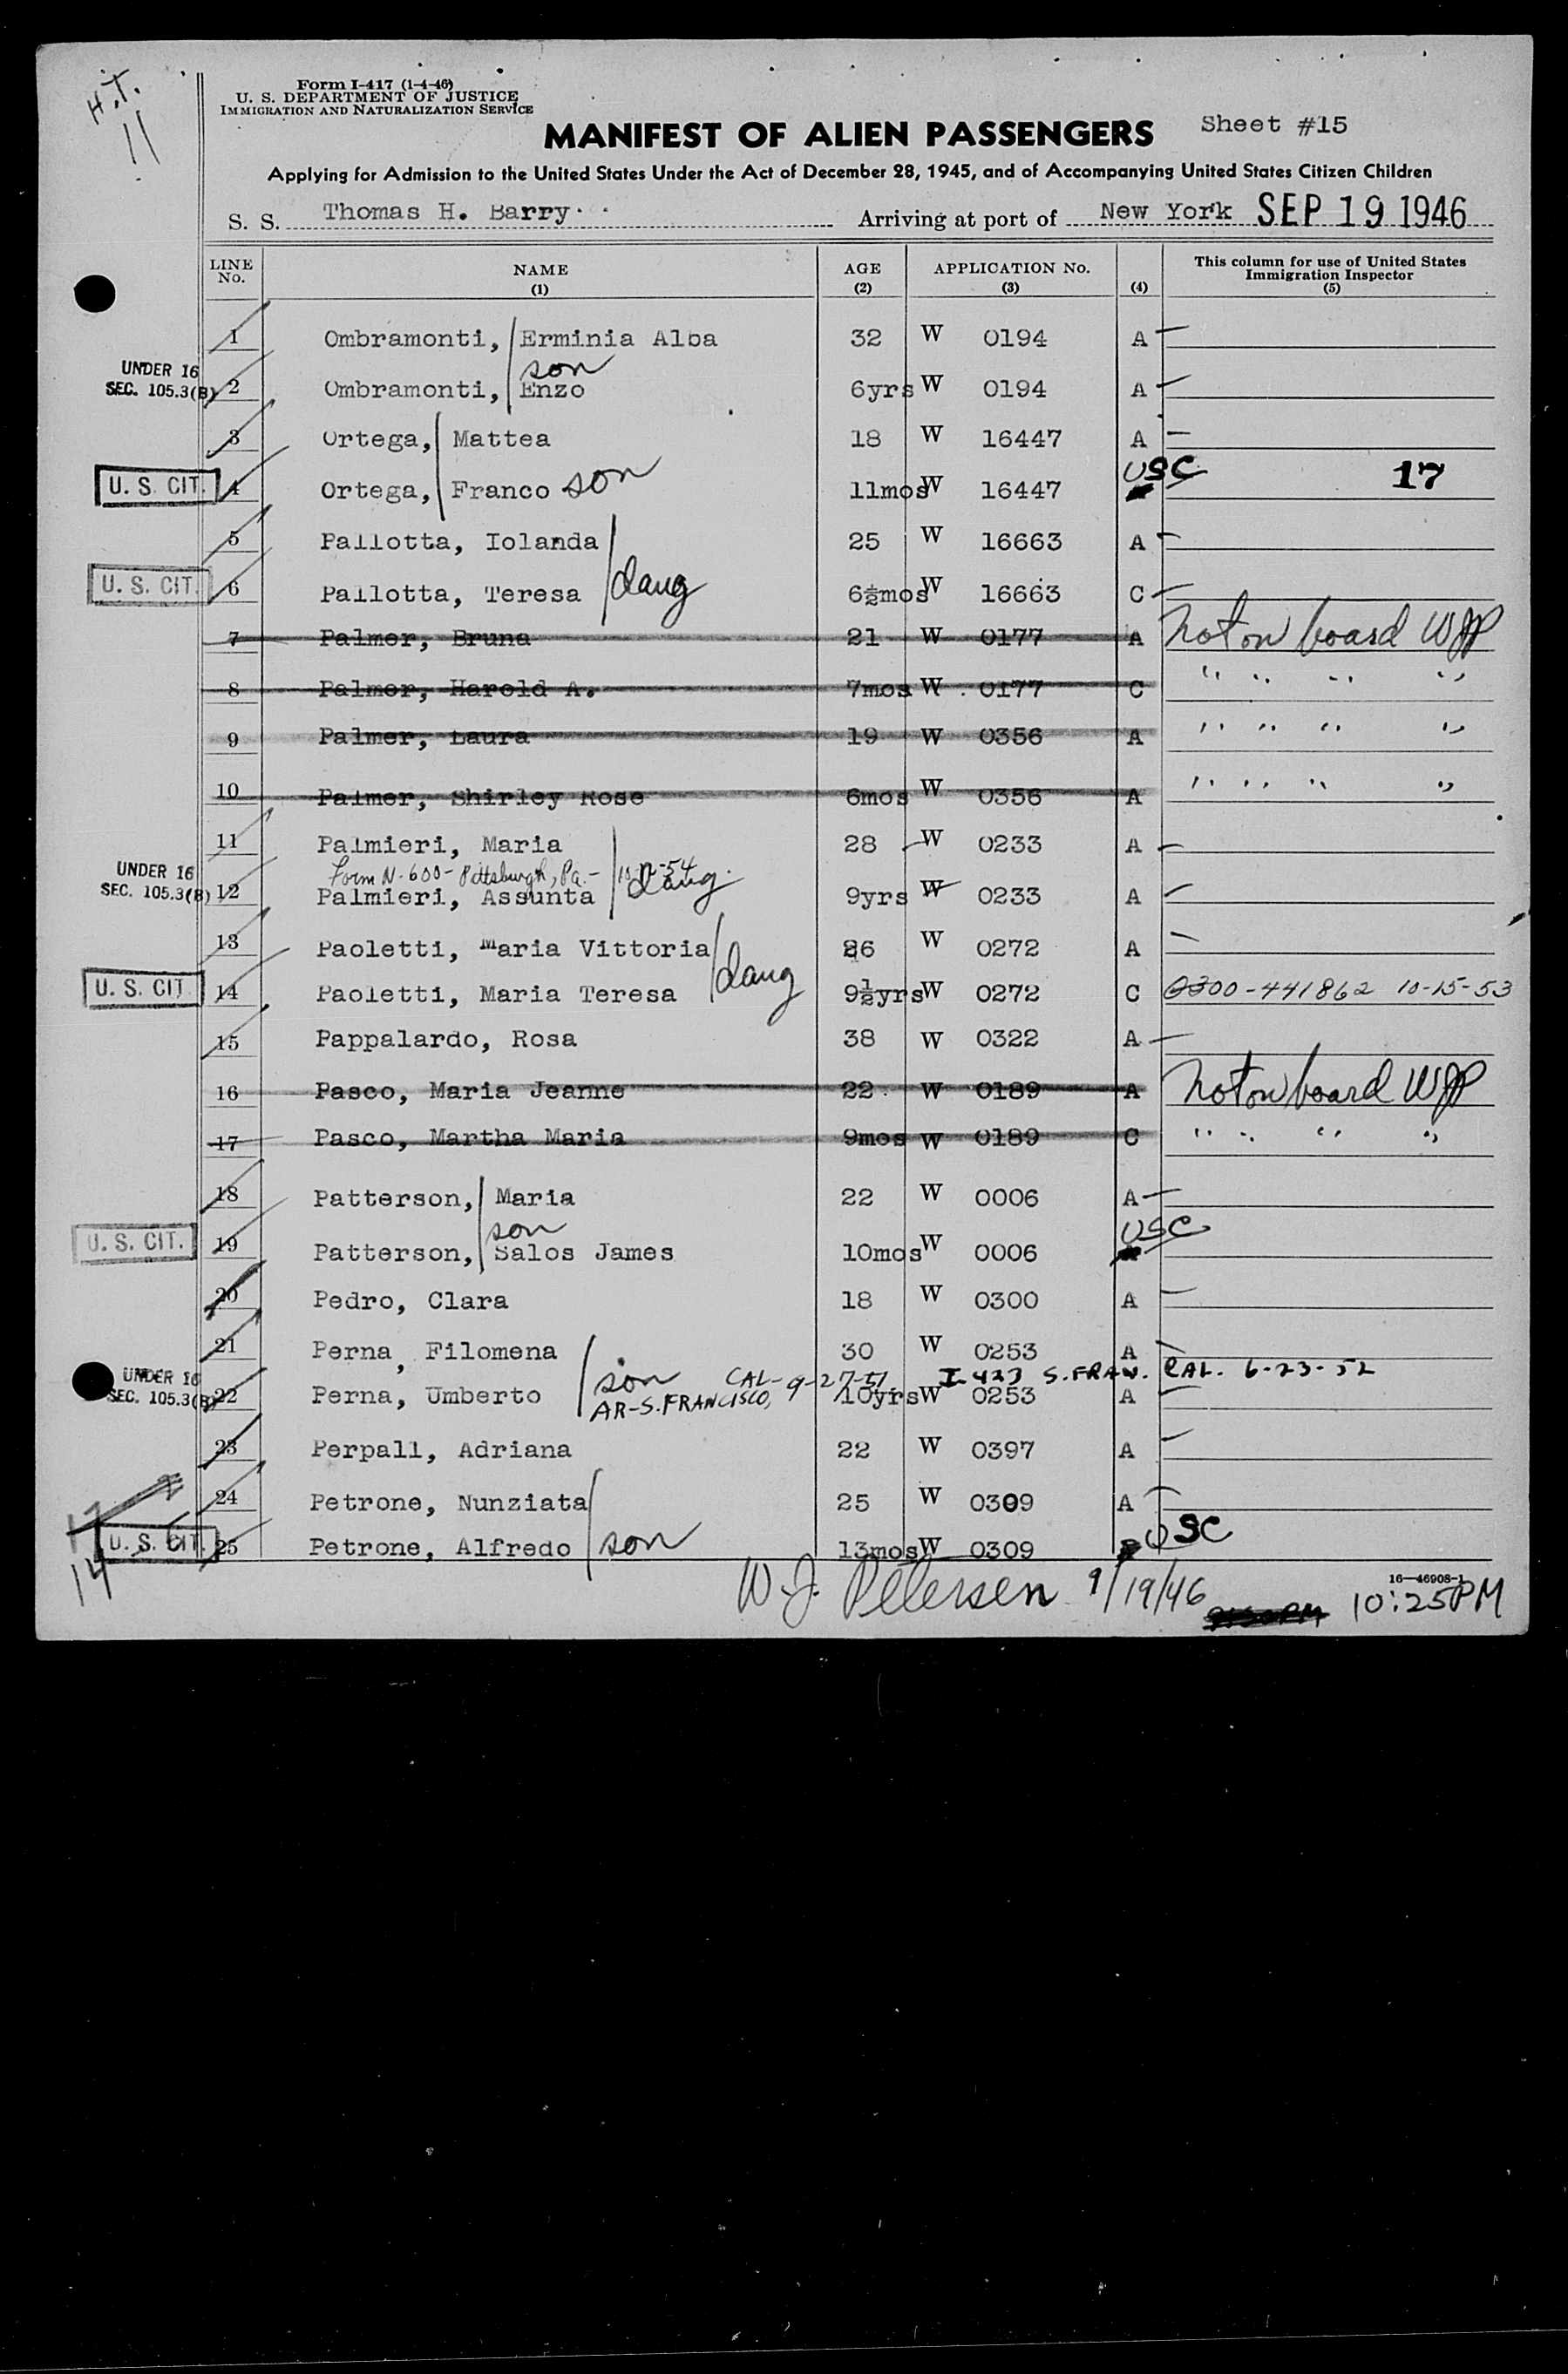 H.T.
11
Form I-417 (1-4-46)
U. S. DEPARTMENT OF JUSTICE
IMMIGRATION AND NATURALIZATION SERVICE
MANIFEST OF ALIEN PASSENGERS Sheet #15
Applying for Admission to the United States Under the Act of December 28, 1945, and of Accompanying United States Citizen Children
S. S. Thomas H. Barry Arriving at port of New York SEP 19 1946
LINE No. NAME (1) AGE (2) APPLICATION No. (3) (4) This column for use of United States Immigration Inspector (5)
1 Ombramonti, Erminia Alba 32 W 0194 A
son
UNDER 16 SEC. 105.3(B) 2 Ombramonti, Enzo 6yrs W 0194 A
3 Ortega, Mattea 18 W 16447 A
U. S. CIT. 4 Ortega, Franco son 11mos W 16447 USC 17
5 Pallotta, Iolanda 25 W 16663 A
U. S. CIT. 6 Pallotta, Teresa daug 6½mos W 16663 C
7 Palmer, Bruna 21 W 0177 A Not on board WJP
8 Palmer, Harold A. 7mos W 0177 C " " " "
9 Palmer, Laura 19 W 0356 A " " " "
10 Palmer, Shirley Rose 6mos W 0356 A " " " "
11 Palmieri, Maria 28 W 0233 A
Form N-600- Pittsburgh, Pa.-
UNDER 16 SEC. 105.3(B) 12 Palmieri, Assunta daug. 9yrs W 0233 A
13 Paoletti, Maria Vittoria 26 W 0272 A
U. S. CIT 14 Paoletti, Maria Teresa daug 9½yrs W 0272 C 0300-441862 10-15-53
15 Pappalardo, Rosa 38 W 0322 A
16 Pasco, Maria Jeanne 22 W 0189 A Not on board WJP
17 Pasco, Martha Maria 9mos W 0189 C " " " "
18 Patterson, Maria 22 W 0006 A
son
U. S. CIT. 19 Patterson, Salos James 10mos W 0006 USC
20 Pedro, Clara 18 W 0300 A
21 Perna, Filomena 30 W 0253 A
son CAL- I-423 S.FRAN. CAL. 6-23-52
UNDER 16 SEC. 105.3(B) 22 Perna, Umberto AR-S.FRANCISCO, 10yrs W 0253 A
23 Perpall, Adriana 22 W 0397 A
24 Petrone, Nunziata 25 W 0309 A
U. S. CIT. 25 Petrone, Alfredo son 13mos W 0309 USC
14
W. J. Petersen 9/19/46 10:25PM
16—46908-1